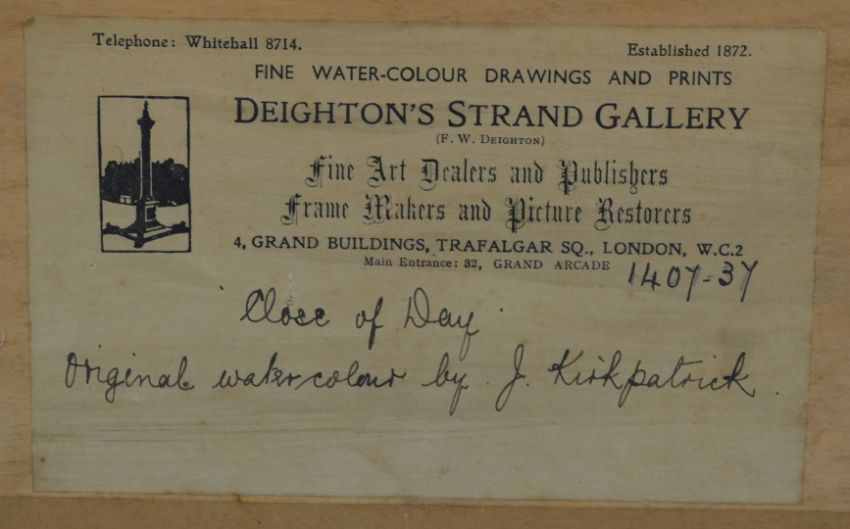 Telephone: Whitehall 8714. Established 1872.
FINE WATER-COLOUR DRAWINGS AND PRINTS
DEIGHTON'S STRAND GALLERY
(F. W. DEIGHTON)
Fine Art Dealers and Publishers
Frame Makers and Picture Restorers
4, GRAND BUILDINGS, TRAFALGAR SQ., LONDON, W.C.2
Main Entrance: 32, GRAND ARCADE
1407-37
'Close of Day'
Original water colour by J. Kirkpatrick.